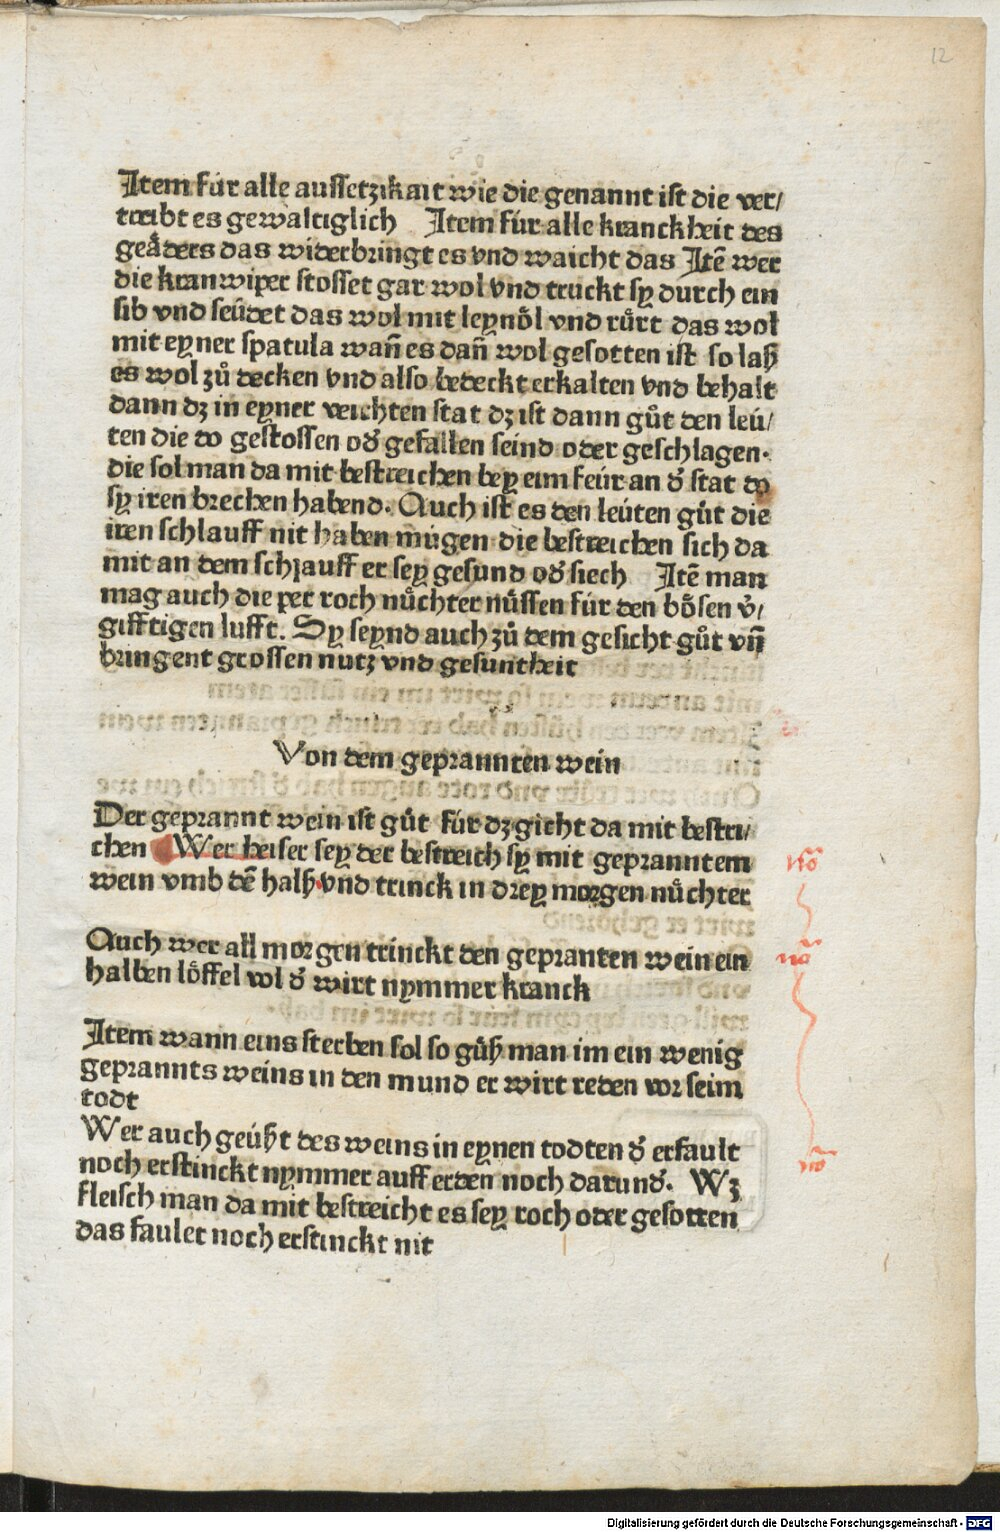 12
Item für alle aussetzikait wie die genannt ist die ver/
treibt es gewaltiglich Item für alle kranckheit des
geäders das widerbringt es vnd waicht das Itē wer
die kranwiper stosset gar wol vnd truckt sy durch ein
sib vnd seüdet das wol mit leynöl vnd rürt das wol
mit eyner spatula wañ es dañ wol gesotten ist so laß
es wol zů decken vnd also bedeckt erkalten vnd behalt
dann dz in eyner veichten stat dz ist dann gůt den leü/
ten die do gestossen od' gefallen seind oder geschlagen.
die sol man da mit bestreichen bey eim feür an d' stat do
sy iren brechen habend. Auch ist es den leüten gůt die
iren schlauff nit haben mügen die bestreichen sich da
mit an dem schlauff er sey gesund od' siech Itē man
mag auch die per roch nüchter nüssen für den bösen v'/
gifftigen lufft. Sy seynd auch zů dem gesicht gůt vñ
bringent grossen nutz vnd gesuntheit
Von dem geprannten wein
Der geprannt wein ist gůt für dz gicht da mit bestri/
chen Wer heiser sey der bestreich sy mit gepranntem
wein vmb dē halß vnd trinck in drey morgen nüchter
Auch wer all morgen trinckt den gepranten wein ein
halben löffel vol d' wirt nymmer kranck
Item wann eins sterben sol so güß man im ein wenig
geprannts weins in den mund er wirt reden vor seim
todt
Wer auch geüßt des weins in eynen todten d' erfault
noch erstinckt nymmer auff erden noch darund'. Wz
fleisch man da mit bestreicht es sey roch oder gesotten
das faulet noch erstinckt nit
Digitalisierung gefördert durch die Deutsche Forschungsgemeinschaft - DFG